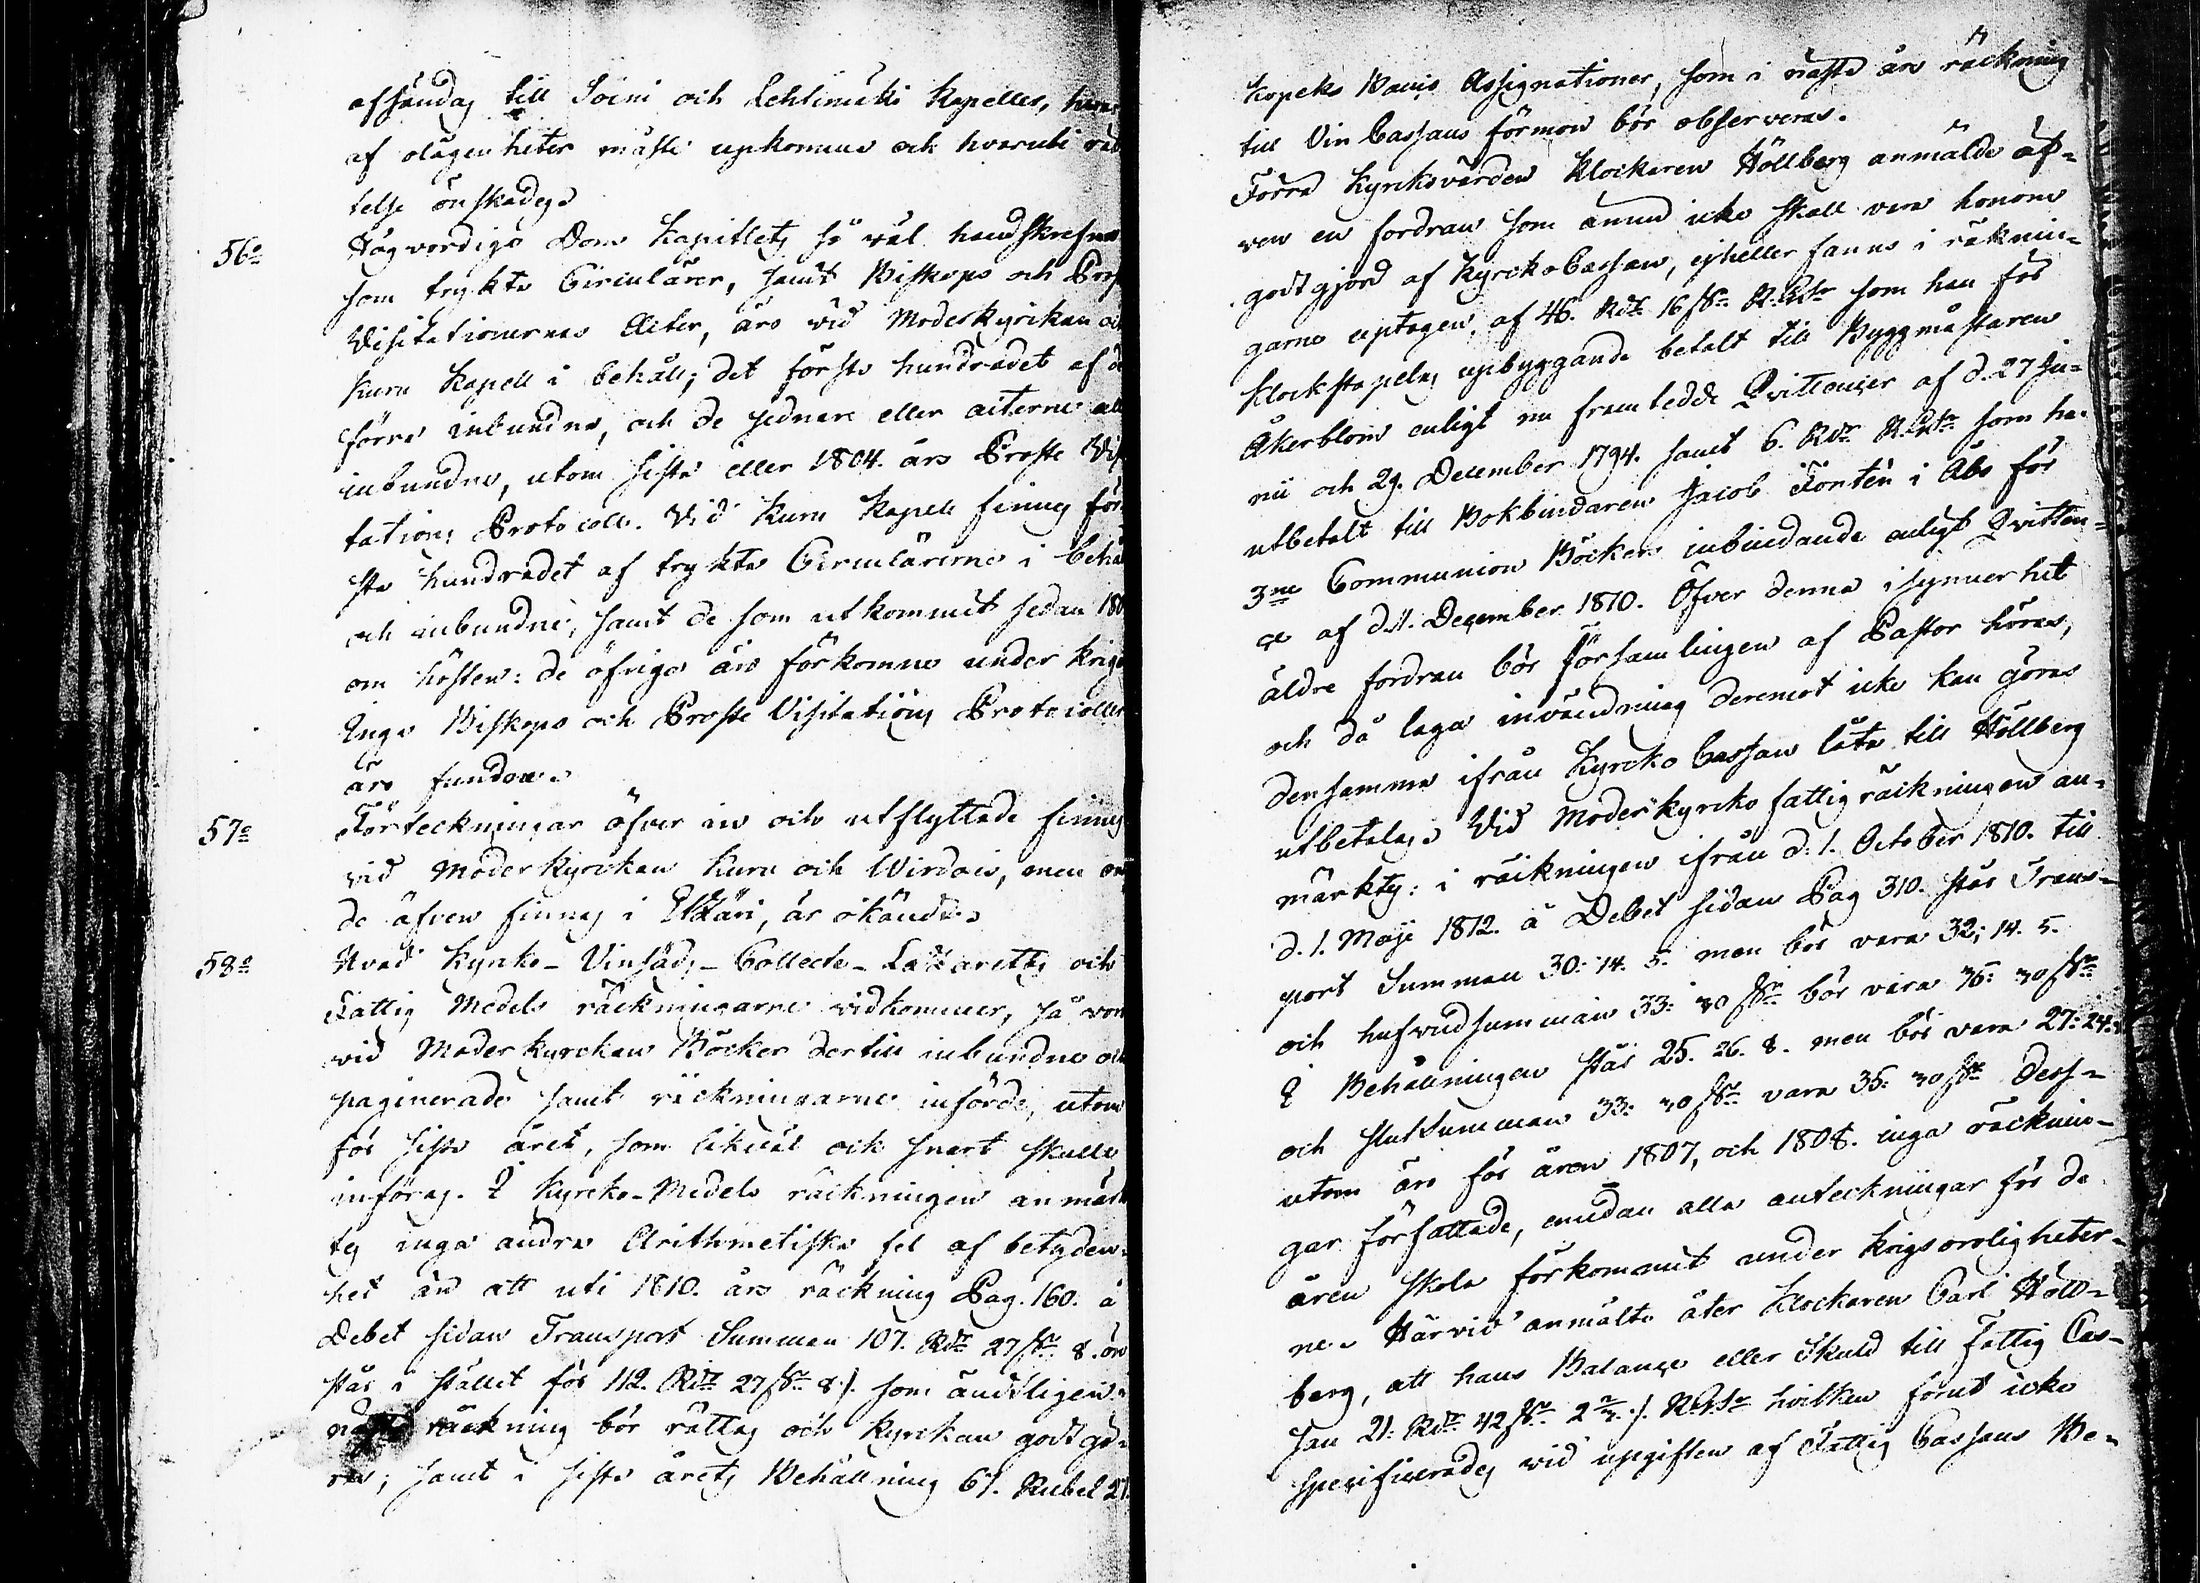 afsändas till Soini och Lehtimäki Kapeller, hvar
af olägenheter måste upkomma och hvaruti rät
telse önskades
56o Högvördiga Dom Kapitlets så väl handskrefna
som trykta Circulärer, samt Biskops och Prost
Visitationernas Acter, äro vid Moderkyrkan och
Kuru Kapell i behåll; det första hundradet af de
förra inbundna, och de sednare eller acterne alla
inbundne, utom sista eller 1804. års Proste Visi
tations Protocoll. Vid Kuru Kapell finnes för
sta hundradet af trykta Circulärerne i behåll
och inbundne, samt de som utkommit sedan 180
om hösten: de öfriga äro förkomne under kriget
Inga Biskops och Proste Visitations Protocoller
äro funden.
57o Förteckningar öfver in och utflyttade finnes
vid Moderkyrckan Kuru och Wirdois, men om
de äfven finnas i Etzäri, är okändt.
58o Hvad Kyrko-Vinsäds-Collecte-Lazaretts och
Fattig Medels räckningarne vidkommer, så voro
vid Moderkyrckan Böcker dertill inbundne och
paginerade samt räckningarne införde, utom
för sista året, som likväl ock snart skulle
införas. I Kyrcko-Medels räckningen anmärk
tes inga andra Arithmetiska fel af betyden-
het än att uti 1810. års räckning Pag. 160. å
Debet sidan Transport Summan 107. Rdr 27 ss 8. ör
står i stället för 112. Rdr 27 ss 8./. som ändteligen i
nästa räckning bör rättas och Kyrckan godtgö-
ras; samt i sista årets Behållning 61. Rubel 21.
Kopeks Banco Assignationer, som i nästa års räckning
till Vin Cassans förmon bör observeras.
Förra Kyrckovärden Klockaren Höllberg anmälde äf-
ven en fordran som ännu icke skall vara honom
godtgjord af Kyrcko Cassan, ejheller fanns i räknin-
garne uptagen, af 46. Rdr 16 ss R.Gts som han för
Klockstapelns upbyggande betalt till Byggmästaren
Åkerblom enligt nu framtedde Qvittencer af d. 27 Ju-
nii och 29. December 1794. samt 6. Rdr R.Gts som han
utbetalt till Bokbindaren Jacob Fontén i Åbo för
3ne Communion Böckers inbindande enligt Qvitten-
ce af d. 11. December 1810. Öfver denna i synnerhet
äldre fordran bör församlingen af Pastor höras,
och då laga invändning deremot icke kan göras
densamma ifrån Kyrcko Cassan låta till Hällberg
utbetalas. Vid Moderkyrcko fattigräckningen an-
märktes: i räckningen ifrån d. 1. October 1810. till
d. 1. Maje 1812. å Debet sidan Pag 310. står Trans-
port Summan 30: 14. 5. men bör vara 32: 14. 5.
och hufvudsumman 33: 30 ss bör vara 35: 30 ss
I Behållningen står 25. 26. 8. men bör vara 27: 24.
och slutsumman 33: 30 ss vara 35: 30 ss Dess-
utom äro för åren 1807, och 1808. inga räcknin-
gar författade, emedan alla anteckningar för de
åren skola förkommit under krigsoroligheter-
ne. Härvid anmälte åter Klockaren Carl Höll-
berg, att hans Balance eller Skuld till Fattig Cas-
san 21: Rdr 42 ss 2 /. R.Gts hvilken förut icke
specificerades vid upgiften af Fattig Cassans Be-